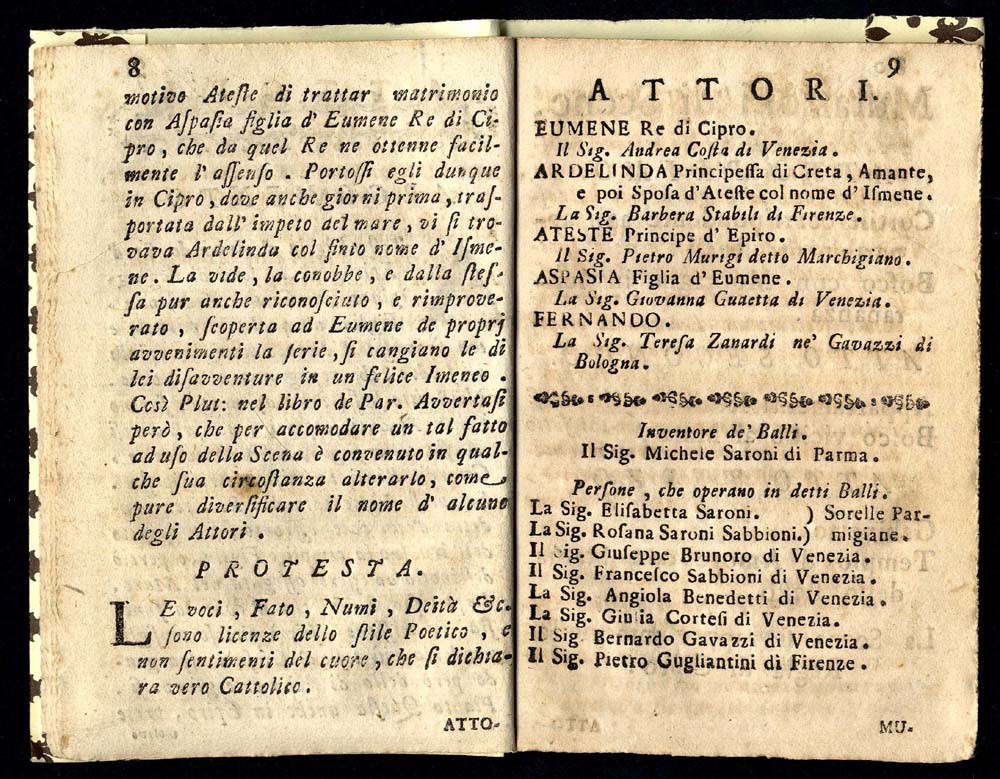 8
motivo Ateſte di trattar matrimonio
con Aſpaſia figlia d' Eumene Re di Ci-
pro, che da quel Re ne ottenne facil-
mente l' aſſenſo. Portoſſi egli dunque
in Cipro, dove anche giorni prima, traſ-
portata dall' impeto del mare, vi ſi tro-
vava Ardelinda col finto nome d' Iſme-
ne. La vide, la conobbe, e dalla ſteſ-
ſa pur anche riconoſciuto, e rimprove-
rato, ſcoperta ad Eumene de proprj
avvenimenti la ſerie, ſi cangiano le di
lei diſavventure in un felice Imeneo.
Così Plut: nel libro de Par. Avvertaſi
però, che per accomodare un tal fatto
ad uſo della Scena è convenuto in qual-
che ſua circoſtanza alterarlo, come
pure diverſificare il nome d' alcuno
degli Attori.
PROTESTA.
LE voci, Fato, Numi, Deità &c.
ſono licenze dello ſtile Poetico, e
non ſentimenti del cuore, che ſi dichia-
ra vero Cattolico.
ATTO-
9
ATTORI.
EUMENE Re di Cipro.
Il Sig. Andrea Coſta di Venezia.
ARDELINDA Principeſſa di Creta, Amante,
e poi Spoſa d'Ateſte col nome d' Iſmene.
La Sig. Barbera Stabili di Firenze.
ATESTE Principe d' Epiro.
Il Sig. Pietro Murigi detto Marchigiano.
ASPASIA Figlia d' Eumene.
La Sig. Giovanna Guaetta di Venezia.
FERNANDO.
La Sig. Tereſa Zanardi ne' Gavazzi di
Bologna.
Inventore de' Balli.
Il Sig. Michele Saroni di Parma.
Perſone, che operano in detti Balli.
La Sig. Eliſabetta Saroni. ) Sorelle Par-
La Sig. Roſana Saroni Sabbioni.) migiane.
Il Sig. Giuſeppe Brunoro di Venezia.
Il Sig. Franceſco Sabbioni di Venezia.
La Sig. Angiola Benedetti di Venezia.
La Sig. Giulia Corteſi di Venezia.
Il Sig. Bernardo Gavazzi di Venezia.
Il Sig. Pietro Gugliantini di Firenze.
MU-